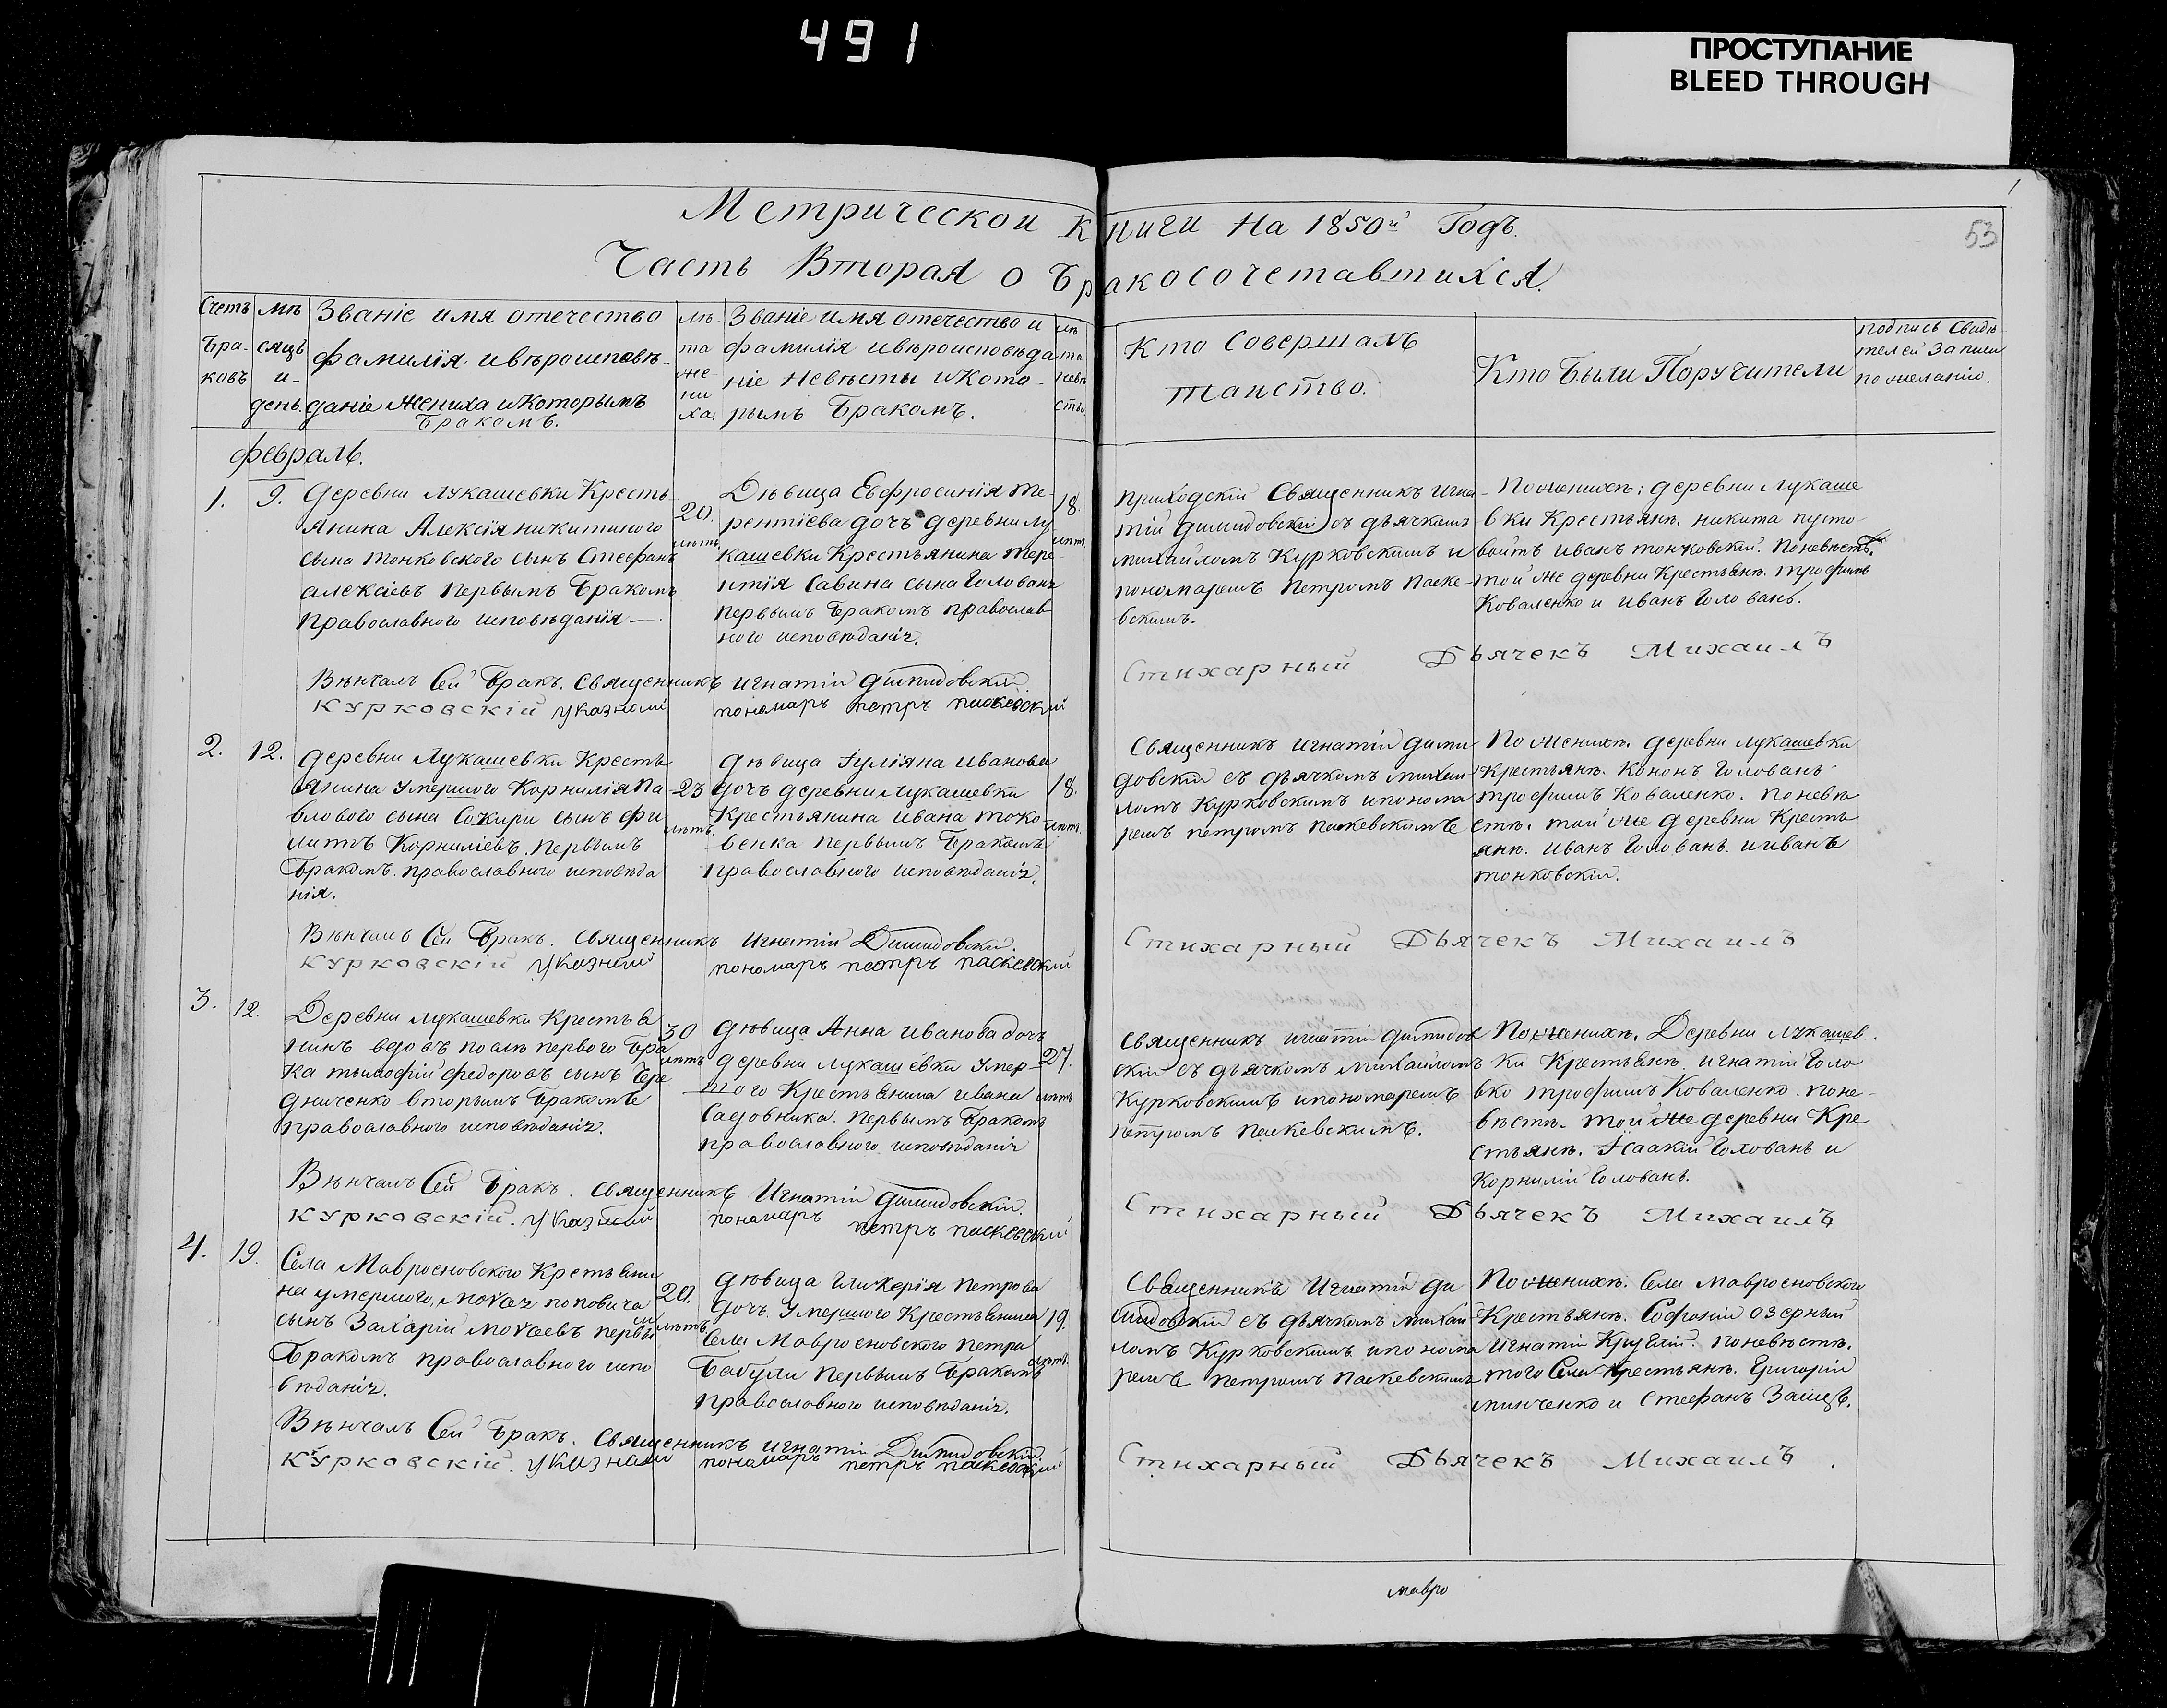 491
ПРОСТУПАНИЕ
BLEED THROUGH
53
Метрической Книги на 1850й Годъ.
Часть Вторая о Бракосочетавшихся.
Счетъ Бра-ковъ
мѣсяцъ и-день
Званіе имя отечество
фамилія и вѣроисповѣ-
даніе жениха и которымъ
Бракомъ.
лѣ-та же-ни-ха.
Званіе имя отечество и
фамилія и вѣроисповѣда
ніе невѣсты и кото-
рымъ Бракомъ.
лѣ та невѣ сты.
Кто Совершалъ
таиство.
Кто Были Поручители
подпись Свидѣ-
телей Записи
по желанію.
февраль.
1. 9.
Деревни Лукашевки Кресть-
янина Алексія никитиного
сына тонковского сынъ Стефанъ
алексіевъ первымъ Бракомъ
православного исповѣданія
20. лѣтъ.
Дѣвица Евфросинія те-
рентіева дочь деревни лу
кашевки Крестьянина тере
нтія Савина сына Голована
первымъ Бракомъ православ
ного исповѣданія.
18. лѣтъ.
приходскій Священникъ Игна-
тій димидовскій съ дьячкомъ
михайломъ Курковскимъ и
пономаремъ Петромъ Паске-
вскимъ.
По женихѣ: деревни лукаше
вки Крестьянѣ. никита пусто-
войтъ иванъ тонковскій. по невѣстѣ.
той же деревни Крестьянѣ. трофимъ
Коваленко и иванъ Голованъ.
Вѣнчалъ Сей Бракъ. Священникъ игнатій димидовскій. Стихарный Дьячекъ Михаилъ
Курковскій указной пономарь петръ паскевскій
2. 12.
деревни Лукашевки Кресть
янина умершого Корнилія Па-
влового сына Сокири сынъ фи
липъ Корниліевъ. первымъ
Бракомъ. православного исповѣда
нія.
23 лѣтъ.
дѣвица Іуліяна иванова
дочь деревни лукашевки
Крестьянина ивана токо
венка первымъ Бракомъ
православного исповѣданія.
18. лѣтъ.
Священникъ игнатій дими
довскій съ дьячкомъ михаи
ломъ Курковскимъ и понома
ремъ петромъ паскевскимъ
По женихѣ. деревни лукашевки
Крестьянѣ. Кононъ Голованъ
трофимъ Коваленко. по невѣ
стѣ. той же деревни Кресть
янѣ. иванъ Голованъ и иванъ
тонковскій.
Вѣнчалъ Сей Бракъ. Священникъ Игнатій Димидовскій. Стихарный Дьячекъ Михаилъ
Курковскій указной пономарь петръ паскевскій
3. 12.
Деревни лукашевки Крестья
нинъ вдовъ по алѣ первого Бра
ка тимофій федоровъ сынъ Бере
дниченко вторымъ Бракомъ
православного исповѣданія.
30 лѣтъ
дѣвица Анна иванова дочь
деревни лукашевки умер
шого Крестьянина ивана
Садовника. первымъ Бракомъ
православного исповѣданія
27. лѣтъ
священникъ игнатій димидов
скій съ дьячкомъ михайломъ
Курковскимъ и пономаремъ
петромъ паскевскимъ.
По женихѣ. Деревни лукашев-
ки Крестьянѣ игнатій Голо
вко трофимъ Коваленко. по не-
вѣстѣ. той же деревни Кре
стьянѣ. Ісаакій Голованъ и
Корнилій Голованъ.
Вѣнчалъ Сей Бракъ. Священникъ Игнатій димидовскій. Стихарный Дьячекъ Михаилъ
Курковскій. указной пономарь петръ паскевскій
4. 19.
Села Мавроеновского Крестьяни
на умершого, моѵсея поповича
сынъ Захарій моѵсеевъ первы
мъ
Бракомъ православного испо
вѣданія.
20. лѣтъ
дѣвица Гликерія петрова
дочь. умершого Крестьянина
Села Мавроеновского петра
Бабули первымъ Бракомъ
православного исповѣданія.
19. лѣтъ.
Священникъ Игнатій ди
мидовскій съ дьячкомъ михай-
ломъ Курковскимъ и понома
ремъ петромъ паскевскимъ
По женихѣ. Села мавроеновского
Крестьянѣ. Софроній озерный
игнатій Круглій. по невѣстѣ.
того Села Крестьянѣ. Григорій
минченко и Стефанъ Заяцъ.
Вѣнчалъ Сей Бракъ. Священникъ игнатій Димидовскій. Стихарный Дьячекъ Михаилъ.
Курковскій. указной пономарь петръ паскевскій
мавро